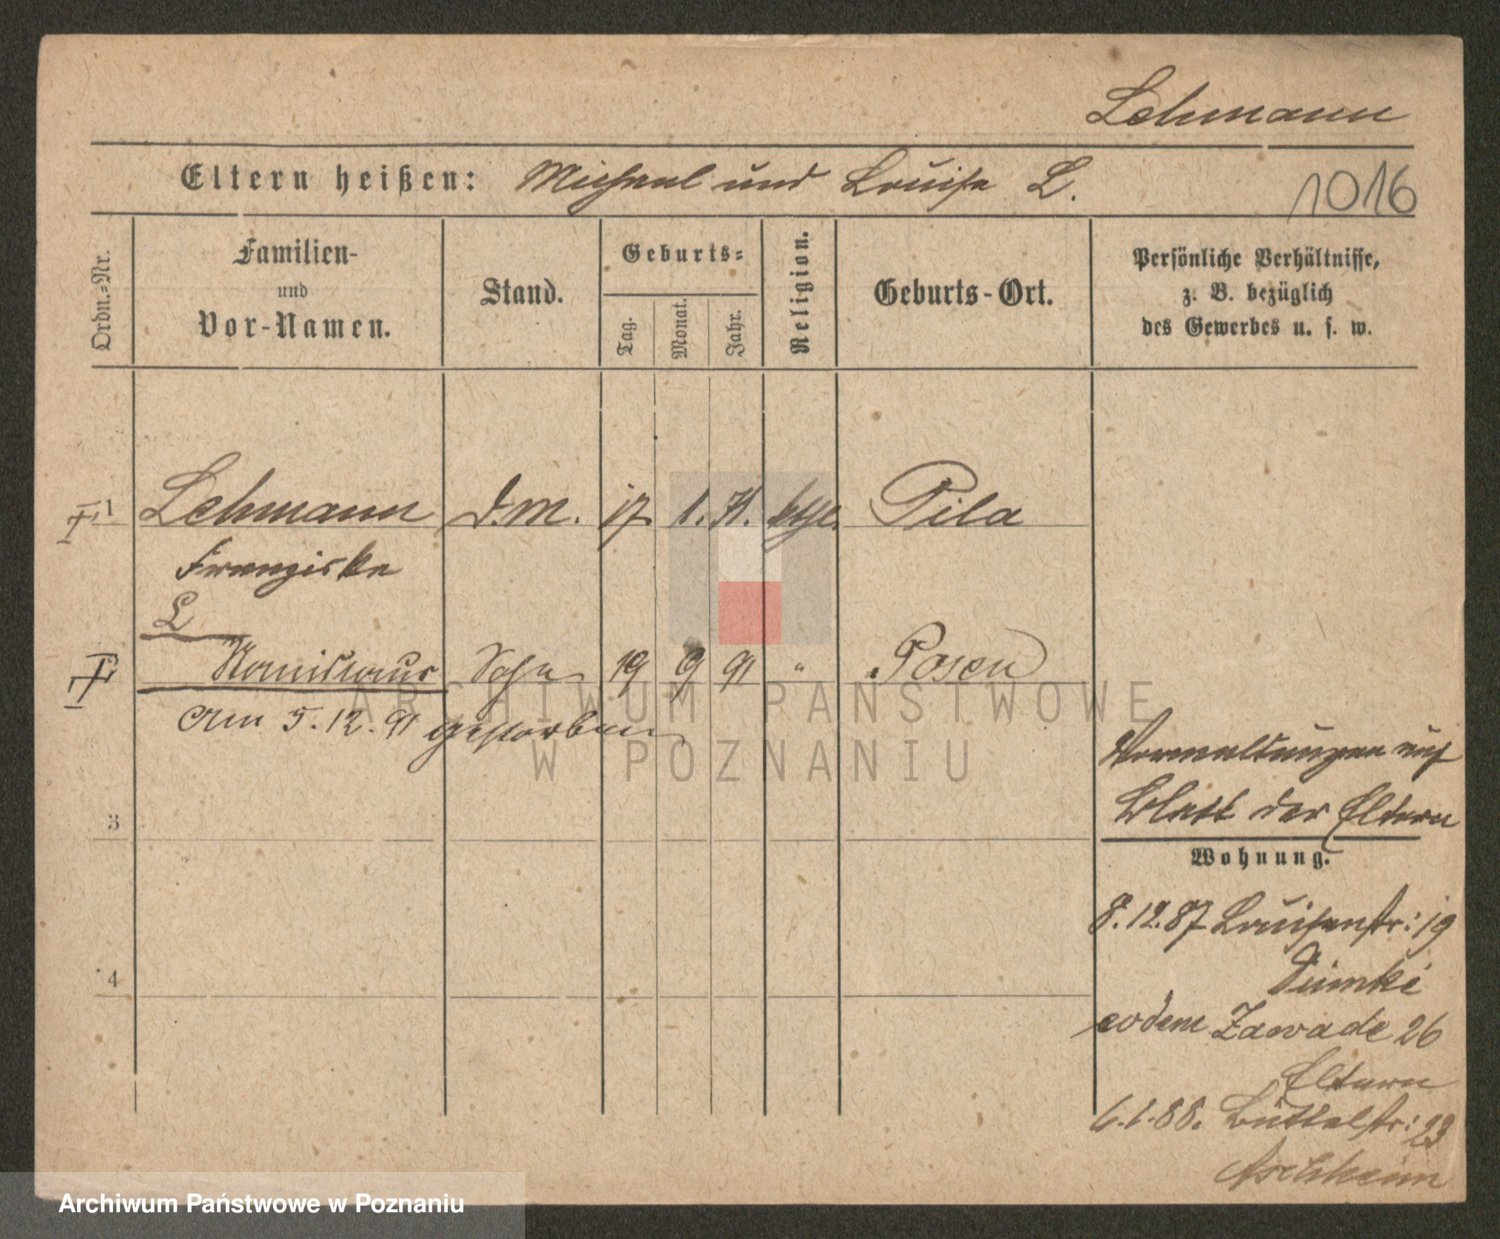 Lehmann
Eltern heißen: Michael und Louise L.
1016
Ordn.-Nr.
Familien-
und
Vor-Namen.
Stand.
Geburts-
Tag.
Monat.
Jahr.
Religion.
Geburts-Ort.
Persönliche Verhältnisse,
z. B. bezüglich
des Gewerbes u. s. w.
1 Lehmann D.M. 17 1. 71. kth. Pila
Franziska
L
Stanislaus Sohn 19 9 91 " Posen
Am 5.12.91 gestorben
3
4
Vermaltungen auf
Blatt der Eltern
Wohnung.
8.12.87 Louisenstr: 19
Dümke
eodem Zawade 26
Eltern
6.1.88. Büttelstr: 23
Aschheim
ARCHIWUM PAŃSTWOWE
W POZNANIU
Archiwum Państwowe w Poznaniu